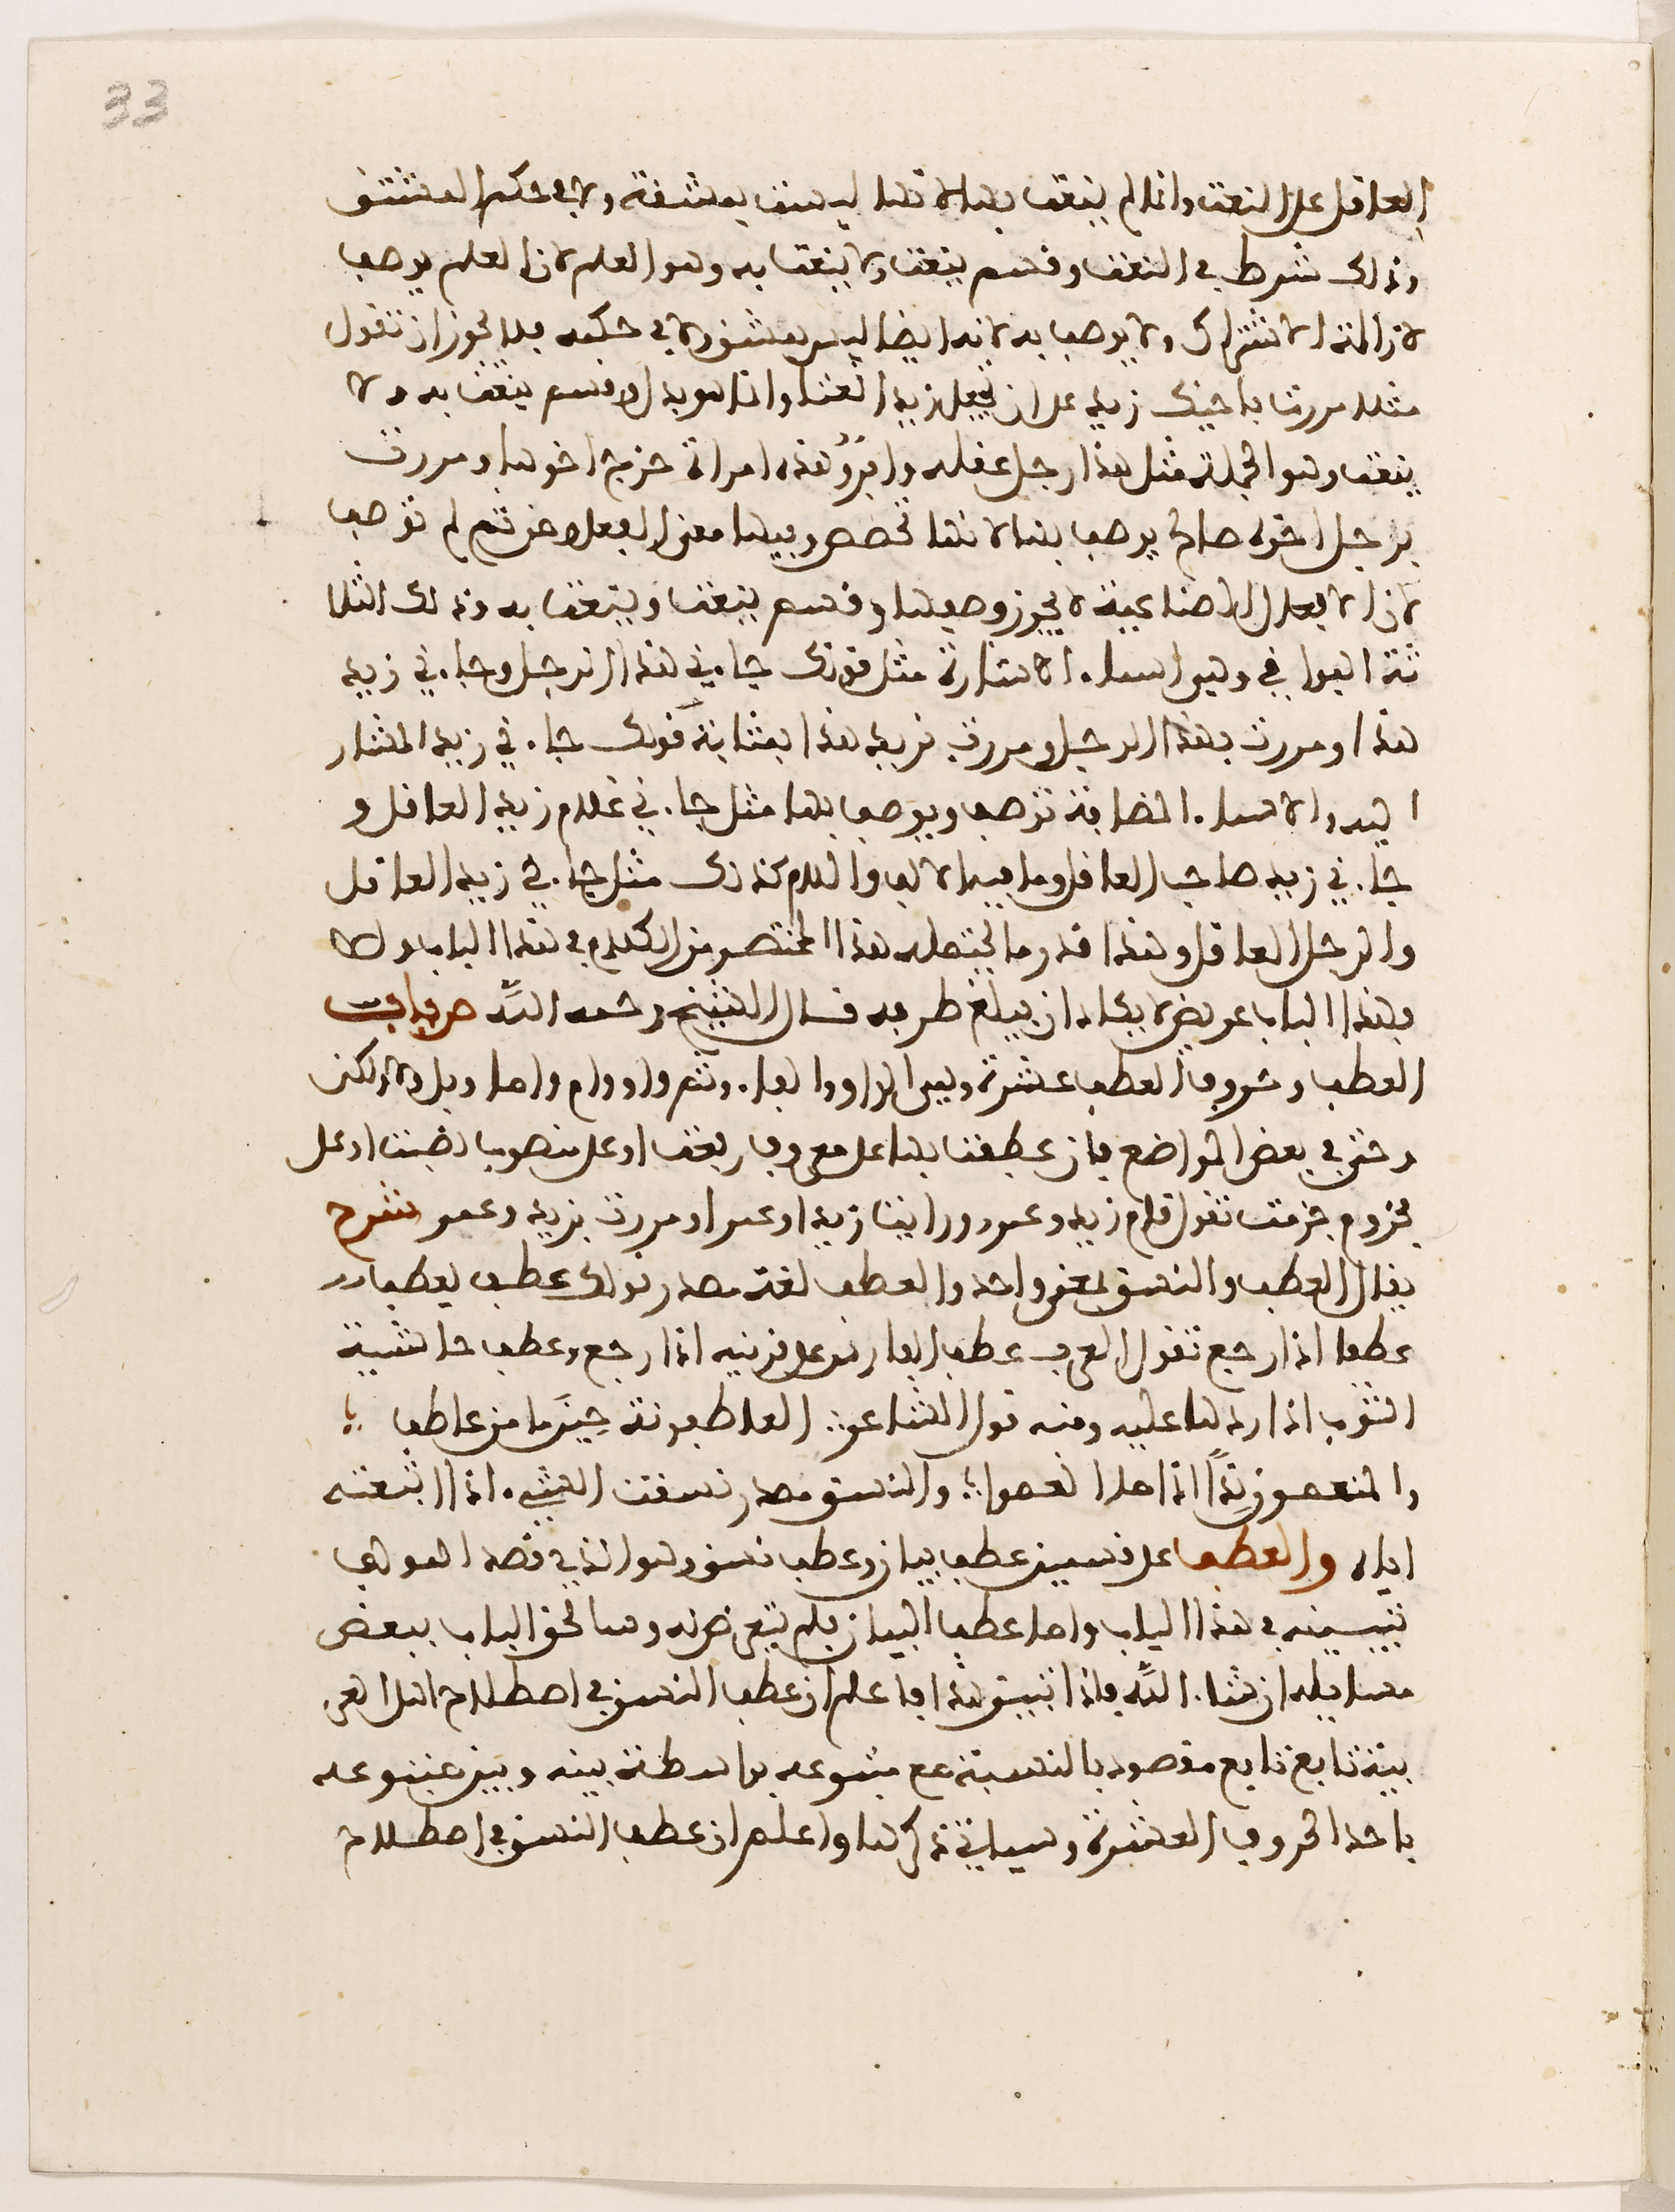 33
العاقل على النعت وانما لم ينعت بها لانها ليست بمشتقة ولا في حكم المشتق
وذلك شرط في النعت وقسم ينعت ولا ينعت به وهو العلم لان العلم يوصف
لازالة الاشتراك ولا يوصف به لانه ايضا ليس بمشتق ولا في حكمه فلا يجوز ان تقول
مثلا مررت باخيك زيد على ان تجعل زيدا نعتا وانما هو بدل وقسم ينعت به ولا
ينعت وهو الجملة مثل هذا رجل عقله وافر وهذه امراة خرج اخوها ومررت
برجل اخوه صالح يوصف بها لانها تخصص وفيها معنى الفعل ومن ثم لم توصف
لان الافعال الصناعية لا يجوز وصفها وقسم ينعت وينعت به وذلك الثلا
ثة البواقي وهي اسماء الاشارة مثل قولك جاءني هذا الرجل وجاءني زيد
هذا ومررت بهذا الرجل ومررت بزيد هذا بمثابة قولك جاءني زيد المشار
اليه والاسماء المضافة توصف ويوصف بها مثل جاءني غلام زيد العاقل و
جاءني زيد صاحب العاقل وما فيه الالف واللام كذلك مثل جاءني زيد العاقل
والرجل العاقل وهذا قدر ما يحتمله هذا المختصر من الكلام في هذا الباب والا
فهذا الباب عريض لا يكاد ان يبلغ طرفه قال الشيخ رحمه الله باب
العطف وحروف العطف عشرة وهي الواو والفاء وثم واو وام واما وبل ولا ولكن
وحتى في بعض المواضع فان عطفت بها على مرفوع رفعت او على منصوب نصبت او على
مجزوم جزمت تقول قام زيد وعمرو ورايت زيدا وعمرا ومررت بزيد وعمرو شرح
يقال العطف والنسق بمعنى واحد والعطف لغة مصدر قولك عطف يعطف
عطفا اذا رجع تقول العرب عطف الفارس على قرنيه اذا رجع وعطف حاشية
الثوب اذا ردها عليه ومنه قول الشاعر العاطفونة حين ما من عاطف
والمنعمون يدا اذا ما انعموا والنسق مصدر نسقت الشيء اذا اتبعته
اياه والعطف على قسمين عطف بيان وعطف نسق وهو الذي قصد المولف
تبيينه في هذا الباب واما عطف البيان فلم يتعرض له وسالحق الباب ببعض
مسايله ان شاء الله فاذا تبين هذا فاعلم ان عطف النسق في اصطلاح اهل العر
بية تابع مقصود بالنسبة مع متبوعه بواسطة بينه وبين متبوعه
باحد الحروف العشرة وسياتي ذكرها واعلم ان عطف النسق في اصطلاح